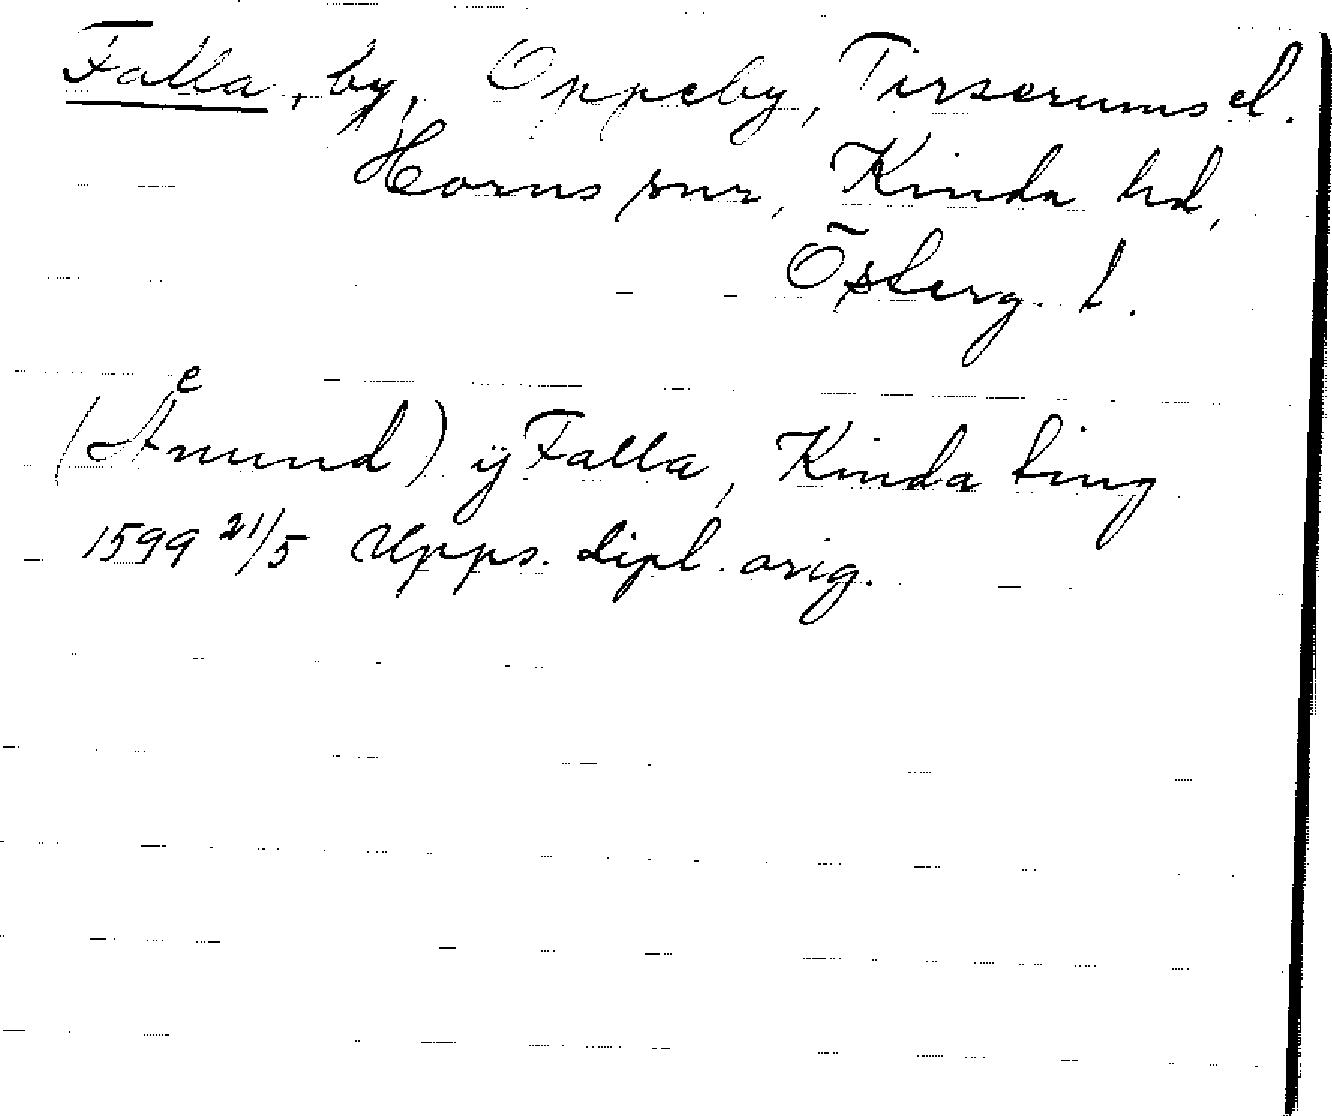 Falla, by, Oppeby, Tirserums el.
Horns snr, Kinda hd,
Österg. l.
(Åmund) ij Falla, Kinda ting
1599 21/5 Upps. dipl. orig.